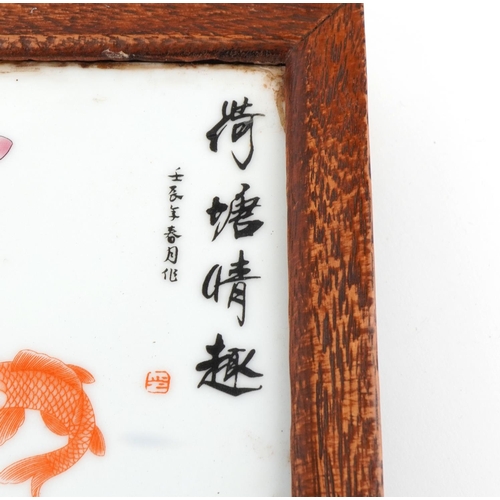 荷塘情趣
壬辰年春月作